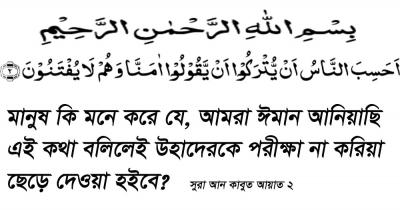 بِسْمِ اللهِ الرَّحْمٰنِ الرَّحِيْمِ
اَحَسِبَ النَّاسُ اَنْ يُّتْرَكُوْا اَنْ يَّقُوْلُوْا اٰمَنَّا وَهُمْ لَا يُفْتَنُوْنَ ﴿٢﴾
মানুষ কি মনে করে যে, আমরা ঈমান আনিয়াছি
এই কথা বলিলেই উহাদেরকে পরীক্ষা না করিয়া
ছেড়ে দেওয়া হইবে? সুরা আন কাবুত আয়াত ২